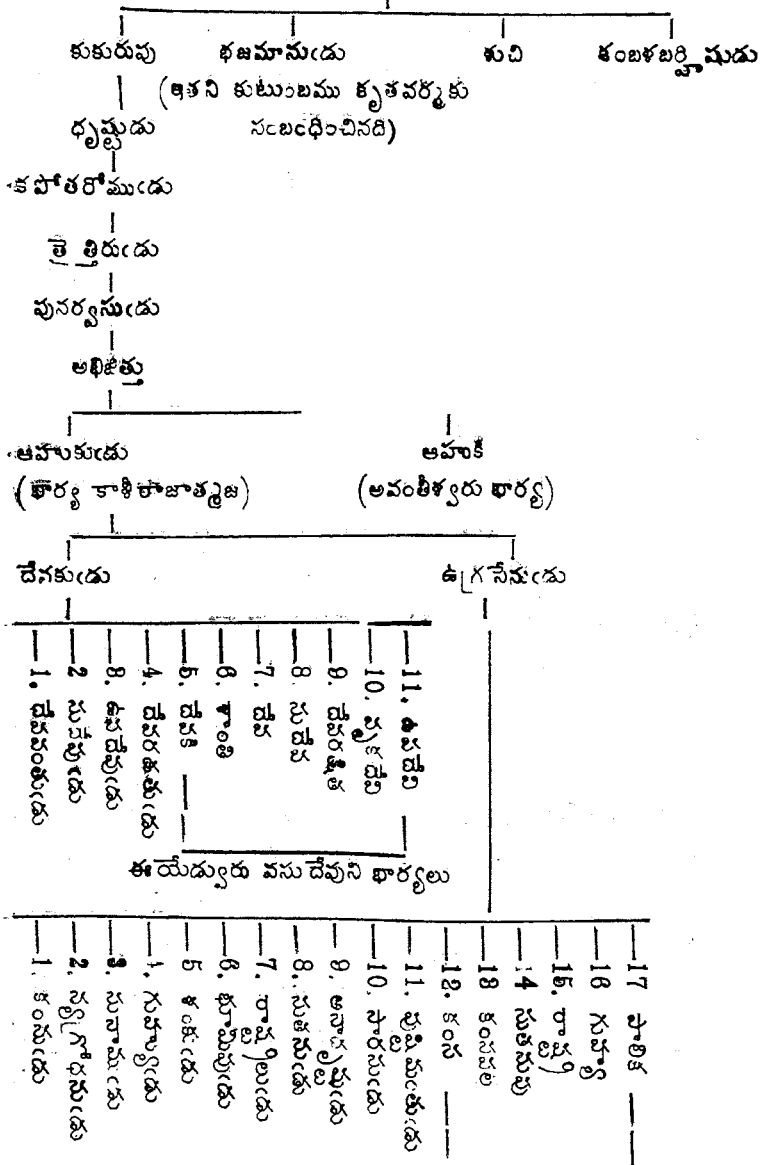 కుకురుపు భజమానుఁడు శుచి కంబళబర్హిషుడు
(ఇతని కుటుంబము కృతవర్మకు
సంబంధించినది)
ధృష్టుడు
కపోతరోముఁడు
తైత్తిరుఁడు
పునర్వసుఁడు
అభిజిత్తు
ఆహుకుఁడు ఆహుకి
(భార్య కాశీరాజాత్మజ) (అవంతీశ్వరు భార్య)
దేవకుఁడు ఉగ్రసేనుఁడు
1. దేవవంతుఁడు
2 సుదేవుఁడు
3. ఉపదేవుఁడు
4. దేవరక్షితుఁడు
5. దేవకి
6. శాంతి
7. దేవ
8. సుదేవ
9. దేవరక్షిత
10. వృకదేవి
11. ఉపదేవి
ఈ యేడ్వురు వసుదేవుని భార్యలు
1. కంసుఁడు
2. న్యగ్రోధనుఁడు
3. సునాముఁడు
4. గుహ్యుఁడు
5 శంకుఁడు
6. భూమిపుఁడు
7. రాష్ట్రిలుఁడు
8. సుతనుఁడు
9.
10. సారనుఁడు
11. పుష్టిమంతుఁడు
12. కంస
13 కంసవతి
14 సుతనువు
15. రాష్ట్రి
16 గుహ్య
17 పాలిక